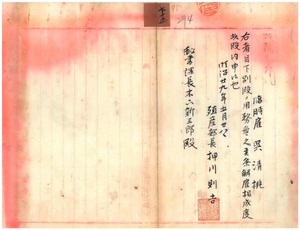 臨時雇 呉清桃
右者目下別段ノ用務無之ニ付解雇相成度
此段内申候也
明治廿九年五月廿八日
殖産部長押川則吉
秘書課長木下新三郎殿